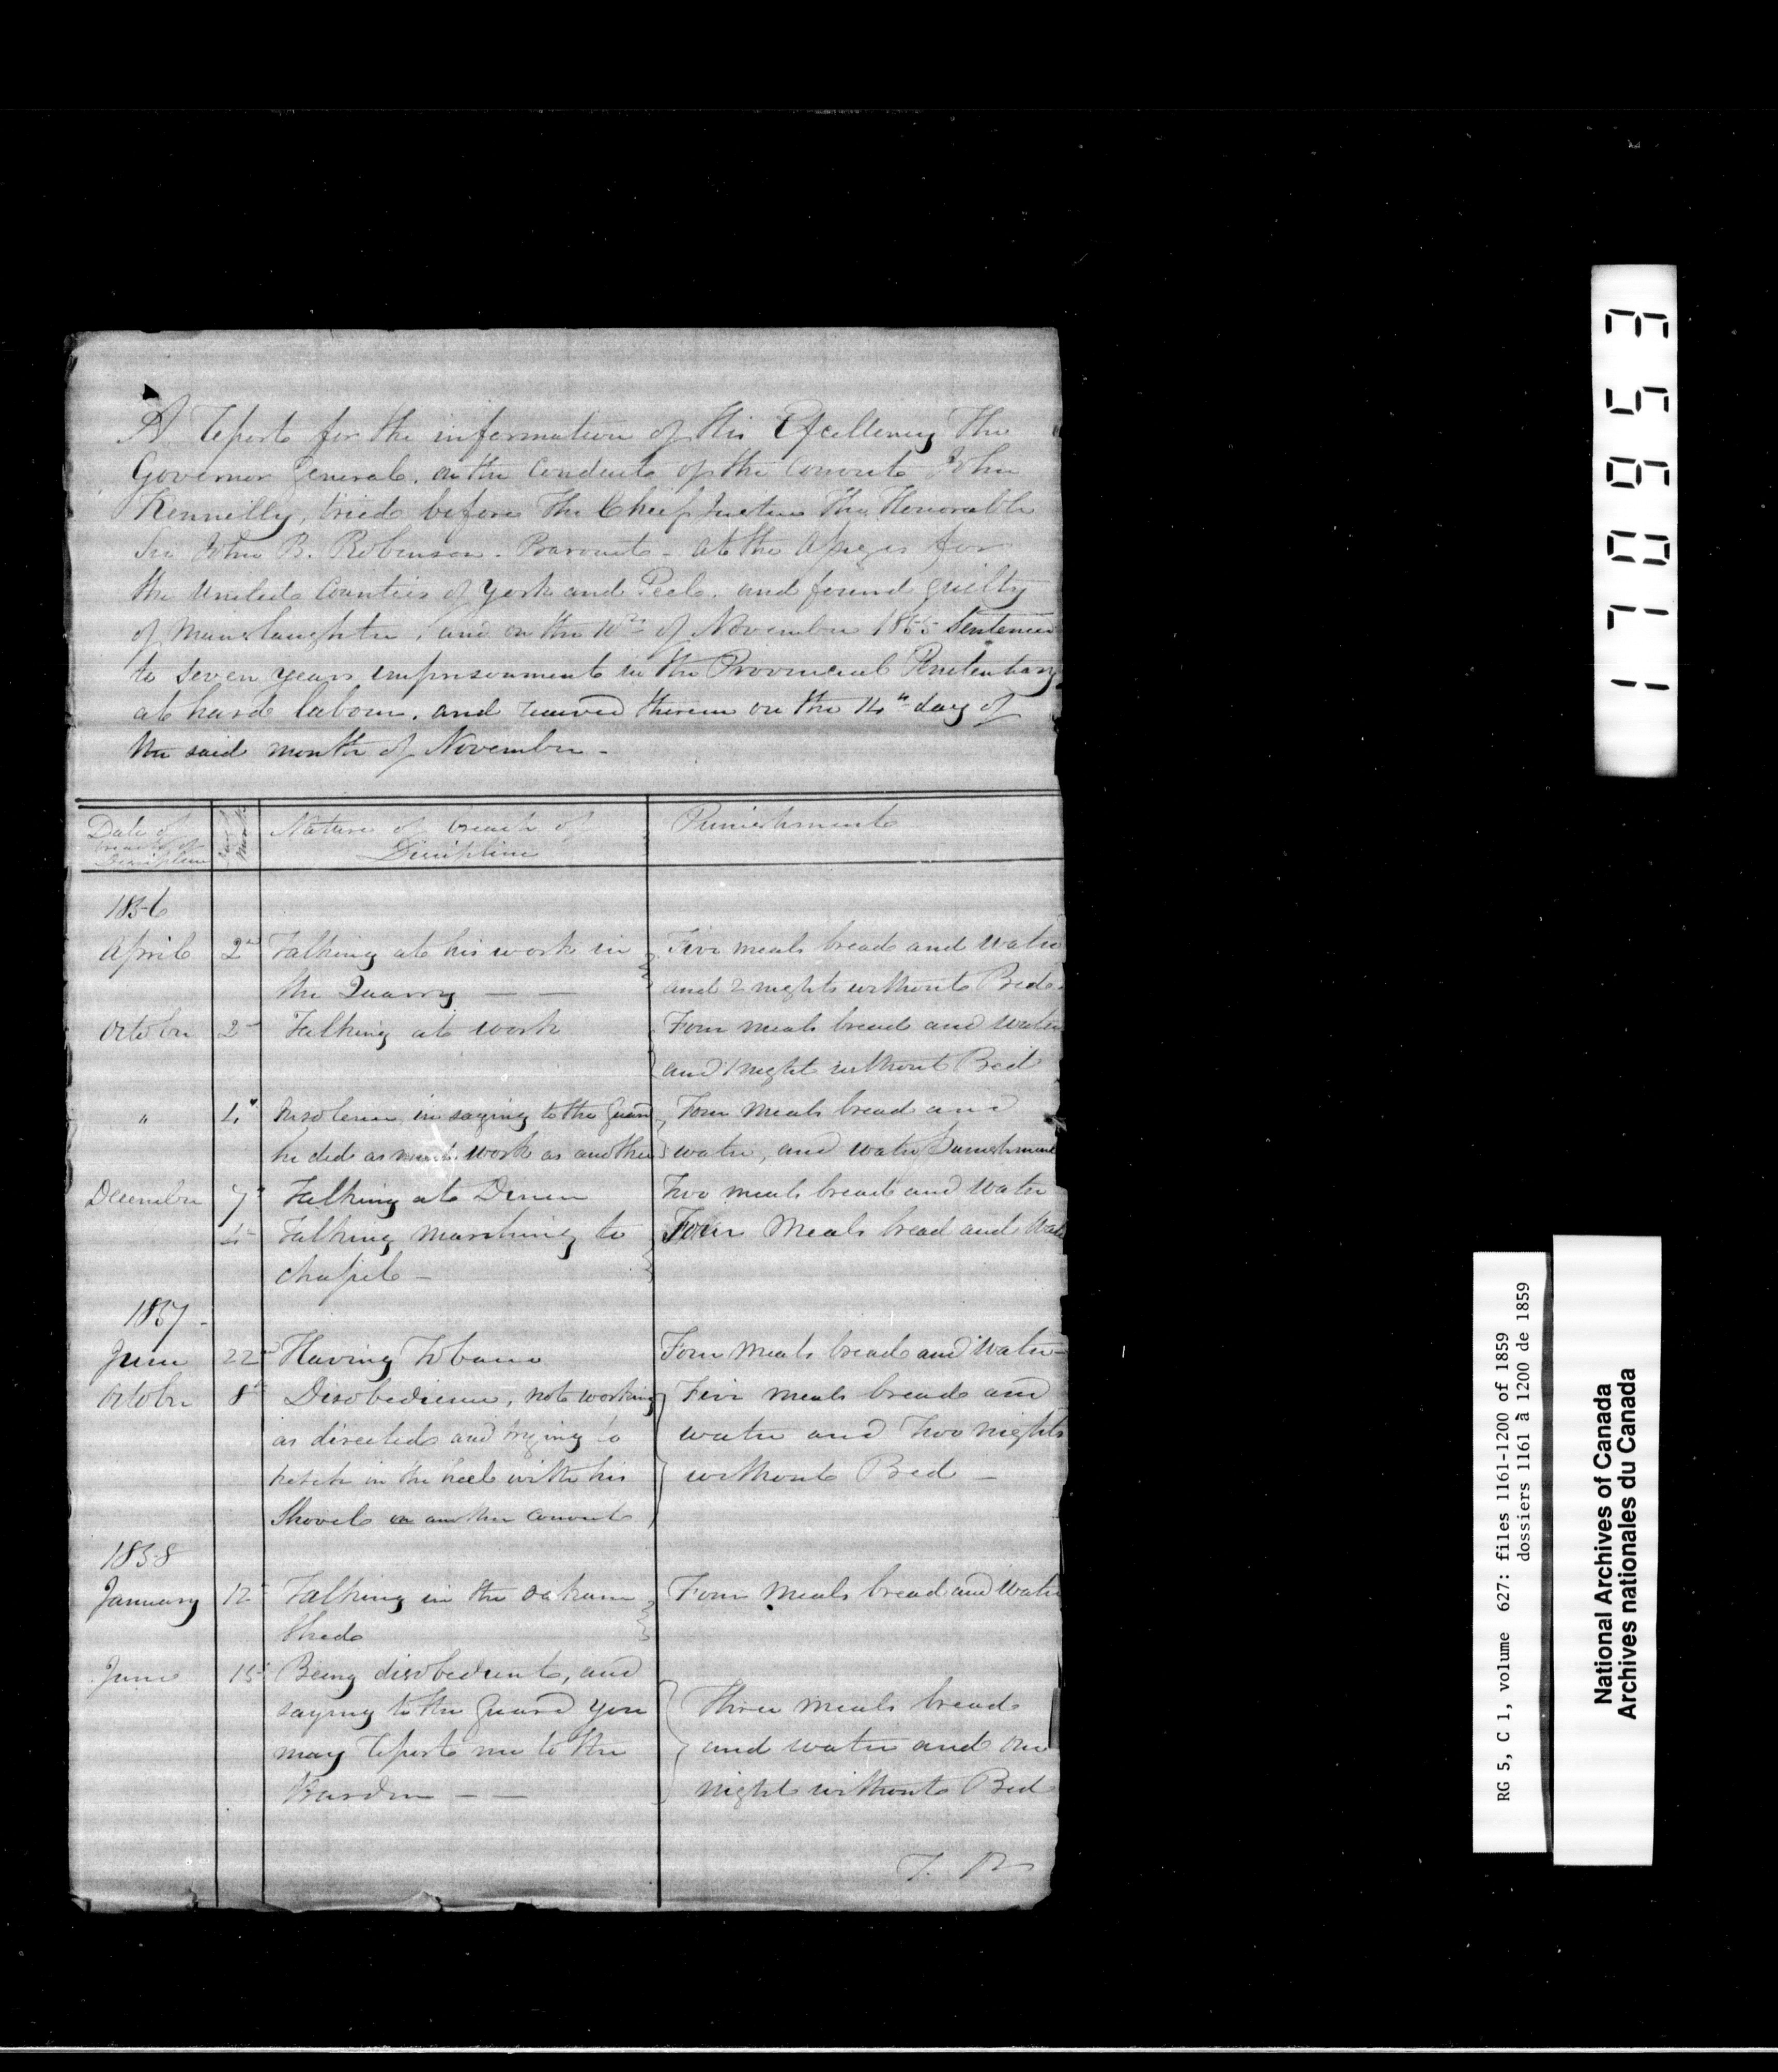 A Report for the information of His Excellency The
Governor General, on the Conduct of the Convict John
Kennilly, tried before The Cheif Justice The Honorable
Sir John B. Robinson. Baronet - at the Assizes for
the United Counties of York and Peel, and found guilty
of Manslaughter, and on the 10th of November 1855 Sentenced
to seven years imprisonment in the Provincial Penitentiary
at hard labour, and received therein on the 14th day of
the said month of November -
Date of
breach of
Discipline
Day of
Month
Nature of breach of
Discipline
Punishment
1856
April 2nd Talking at his work in
the Quarry — —
Five meals bread and water
and 2 nights without Bed.
October 2nd Talking at work
Four meals bread and water
and 1 night without Bed
" 4th Insolence in saying to the Guard
he did as much work as another
Four meals bread and
water, and water punishment
December 7th Talking at Dinner
Two meals bread and water
Talking marching to
Chapel -
Four Meals bread and Water
1857 -
June 22nd Having Tobacco
Four Meals bread and Water -
October 8th Disobedience, not working
as directed and trying to
in the heel with his
Shovel another convict
Five meals bread and
water and Two nights
without Bed -
1858
January 12th Talking in the oakum
shed
Four Meals bread and Water
June 15th Being disobedient, and
saying to the Guard you
may report me to the
Warden — —
Three meals bread
and water and one
night without Bed
170953
RG 5, C 1, volume 627: files 1161-1200 of 1859
dossiers 1161 à 1200 de 1859
National Archives of Canada
Archives nationales du Canada